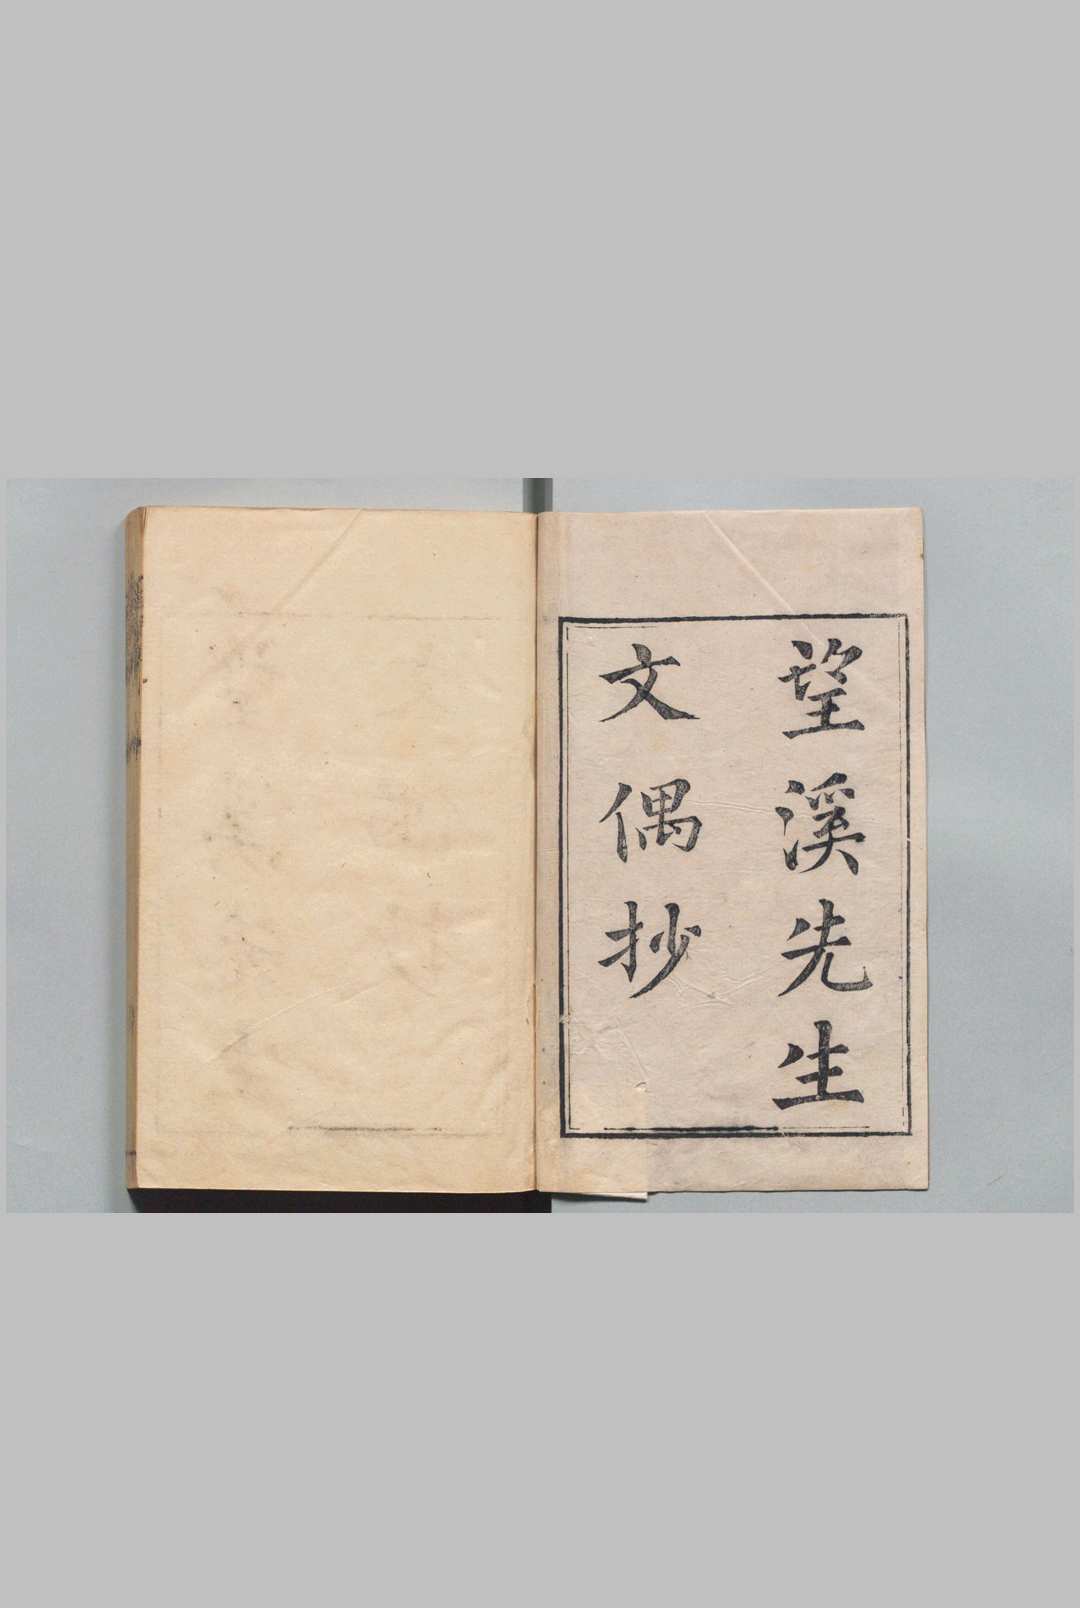 望溪先生
文偶抄